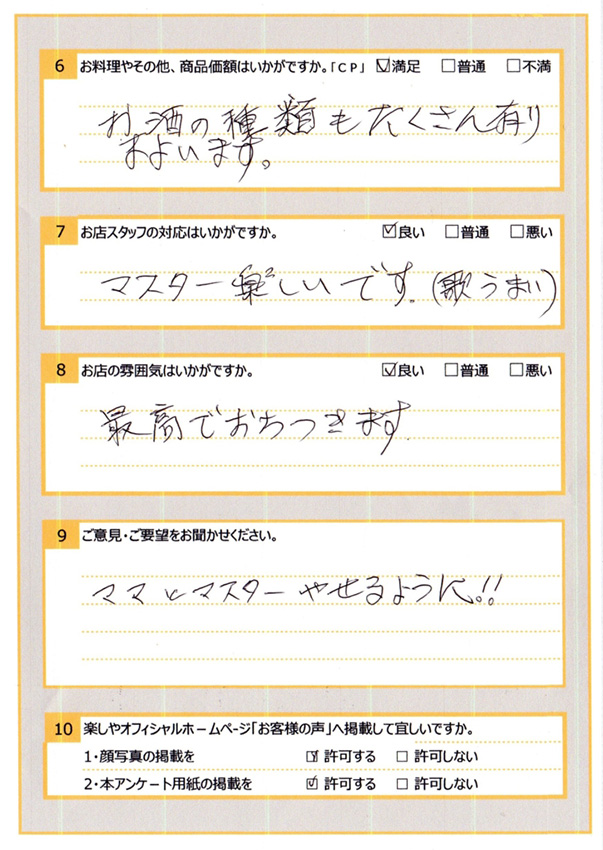 6 お料理やその他、商品価額はいかがですか。「CP」 ☑満足 □普通 □不満
お酒の種類もたくさん有り
まよいます。
7 お店スタッフの対応はいかがですか。 ☑良い □普通 □悪い
マスター楽しいです。(歌うまい)
8 お店の雰囲気はいかがですか。 ☑良い □普通 □悪い
最高でおちつきます。
9 ご意見・ご要望をお聞かせください。
ママとマスターやせるように!!
10 楽しやオフィシャルホームページ「お客様の声」へ掲載して宜しいですか。
1・顔写真の掲載を ☑許可する □許可しない
2・本アンケート用紙の掲載を ☑許可する □許可しない